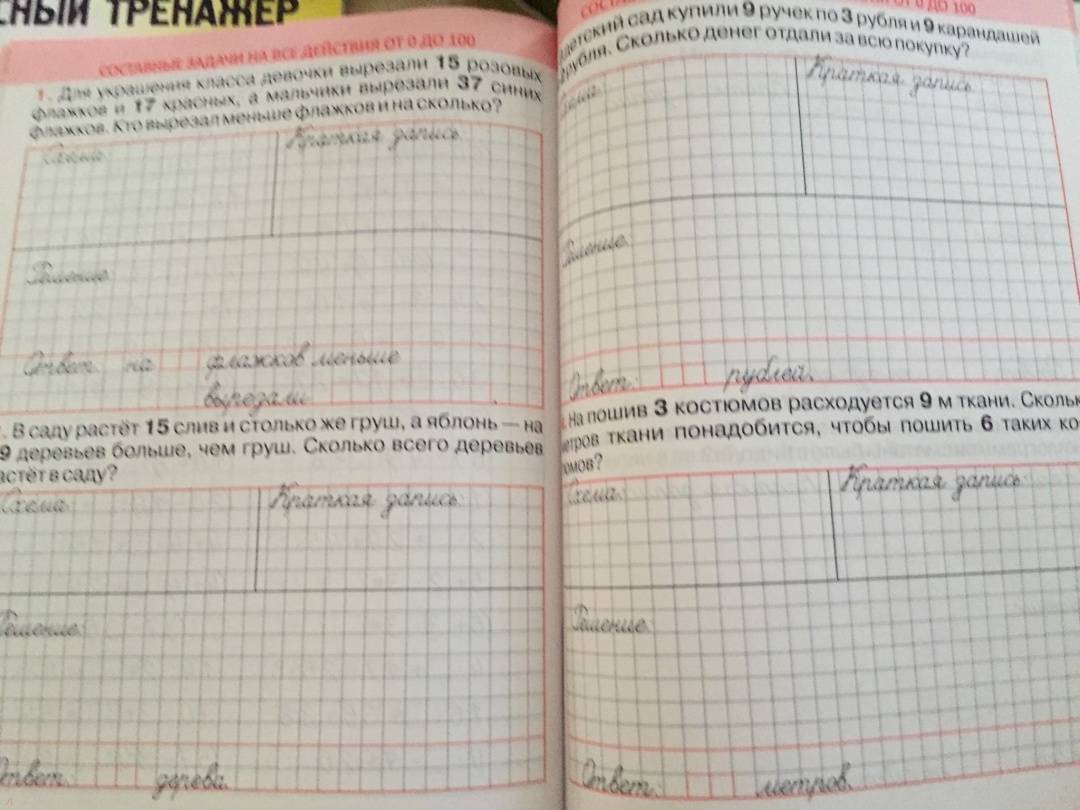 СНЫЙ ТРЕНАЖЁР
СОСТАВНЫЕ ЗАДАЧИ НА ВСЕ ДЕЙСТВИЯ ОТ 0 ДО 100
1. Для украшения класса девочки вырезали 15 розовых
флажков и 17 красных, а мальчики вырезали 37 синих
флажков. Кто вырезал меньше флажков и на сколько?
Схема
Краткая запись
Решение
Ответ: на флажков меньше
вырезали .
. В саду растёт 15 слив и столько же груш, а яблонь — на
9 деревьев больше, чем груш. Сколько всего деревьев
астёт в саду?
Схема
Краткая запись
Решение
Ответ: дерева.
ОТ 0 ДО 100
детский сад купили 9 ручек по 3 рубля и 9 карандашей
рубля. Сколько денег отдали за всю покупку?
Схема
Краткая запись
Решение
Ответ: рублей.
. На пошив 3 костюмов расходуется 9 м ткани. Скольк
метров ткани понадобится, чтобы пошить 6 таких ко
юмов?
Схема
Краткая запись
Решение
Ответ: метров.